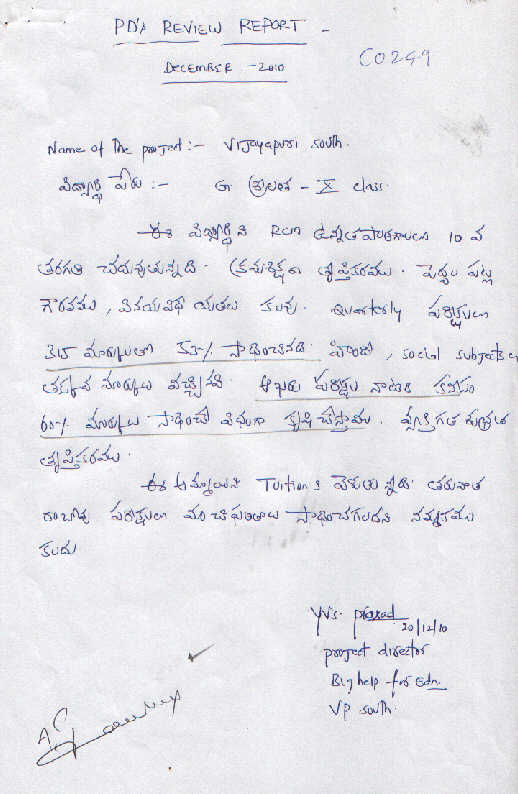 PD'S REVIEW REPORT -
DECEMBER - 2010
C0249
Name of the project :- Vijayapuri South.
విద్యార్థి పేరు :- G - X class.
ఈ విద్యార్థిని RCM ఉన్నత పాఠశాలలో 10 వ
తరగతి చదువుతున్నది. క్రమశిక్షణ తృప్తికరము. పెద్దల పట్ల
గౌరవము, వినయవిధేయతలు కలవు. Quarterly పరీక్షలలో
మార్కులతో 53% సాధించినది. హిందీ, social subjects లో
తక్కువ మార్కులు వచ్చినవి. ఆఖరు పరీక్షల నాటికి కనీసం
60% మార్కులు సాధించే విధంగా కృషి చేస్తాము. వ్యక్తిగత శుభ్రత
తృప్తికరము.
ఈ అమ్మాయి Tuitions వెళుతున్నది. తరువాత
రాబోవు పరీక్షలలో మంచి ఫలితాలు సాధించగలదని నమ్మకము
కలదు
YVS. Prasad
20/12/10
project director
Big help for Edn.
VP South.